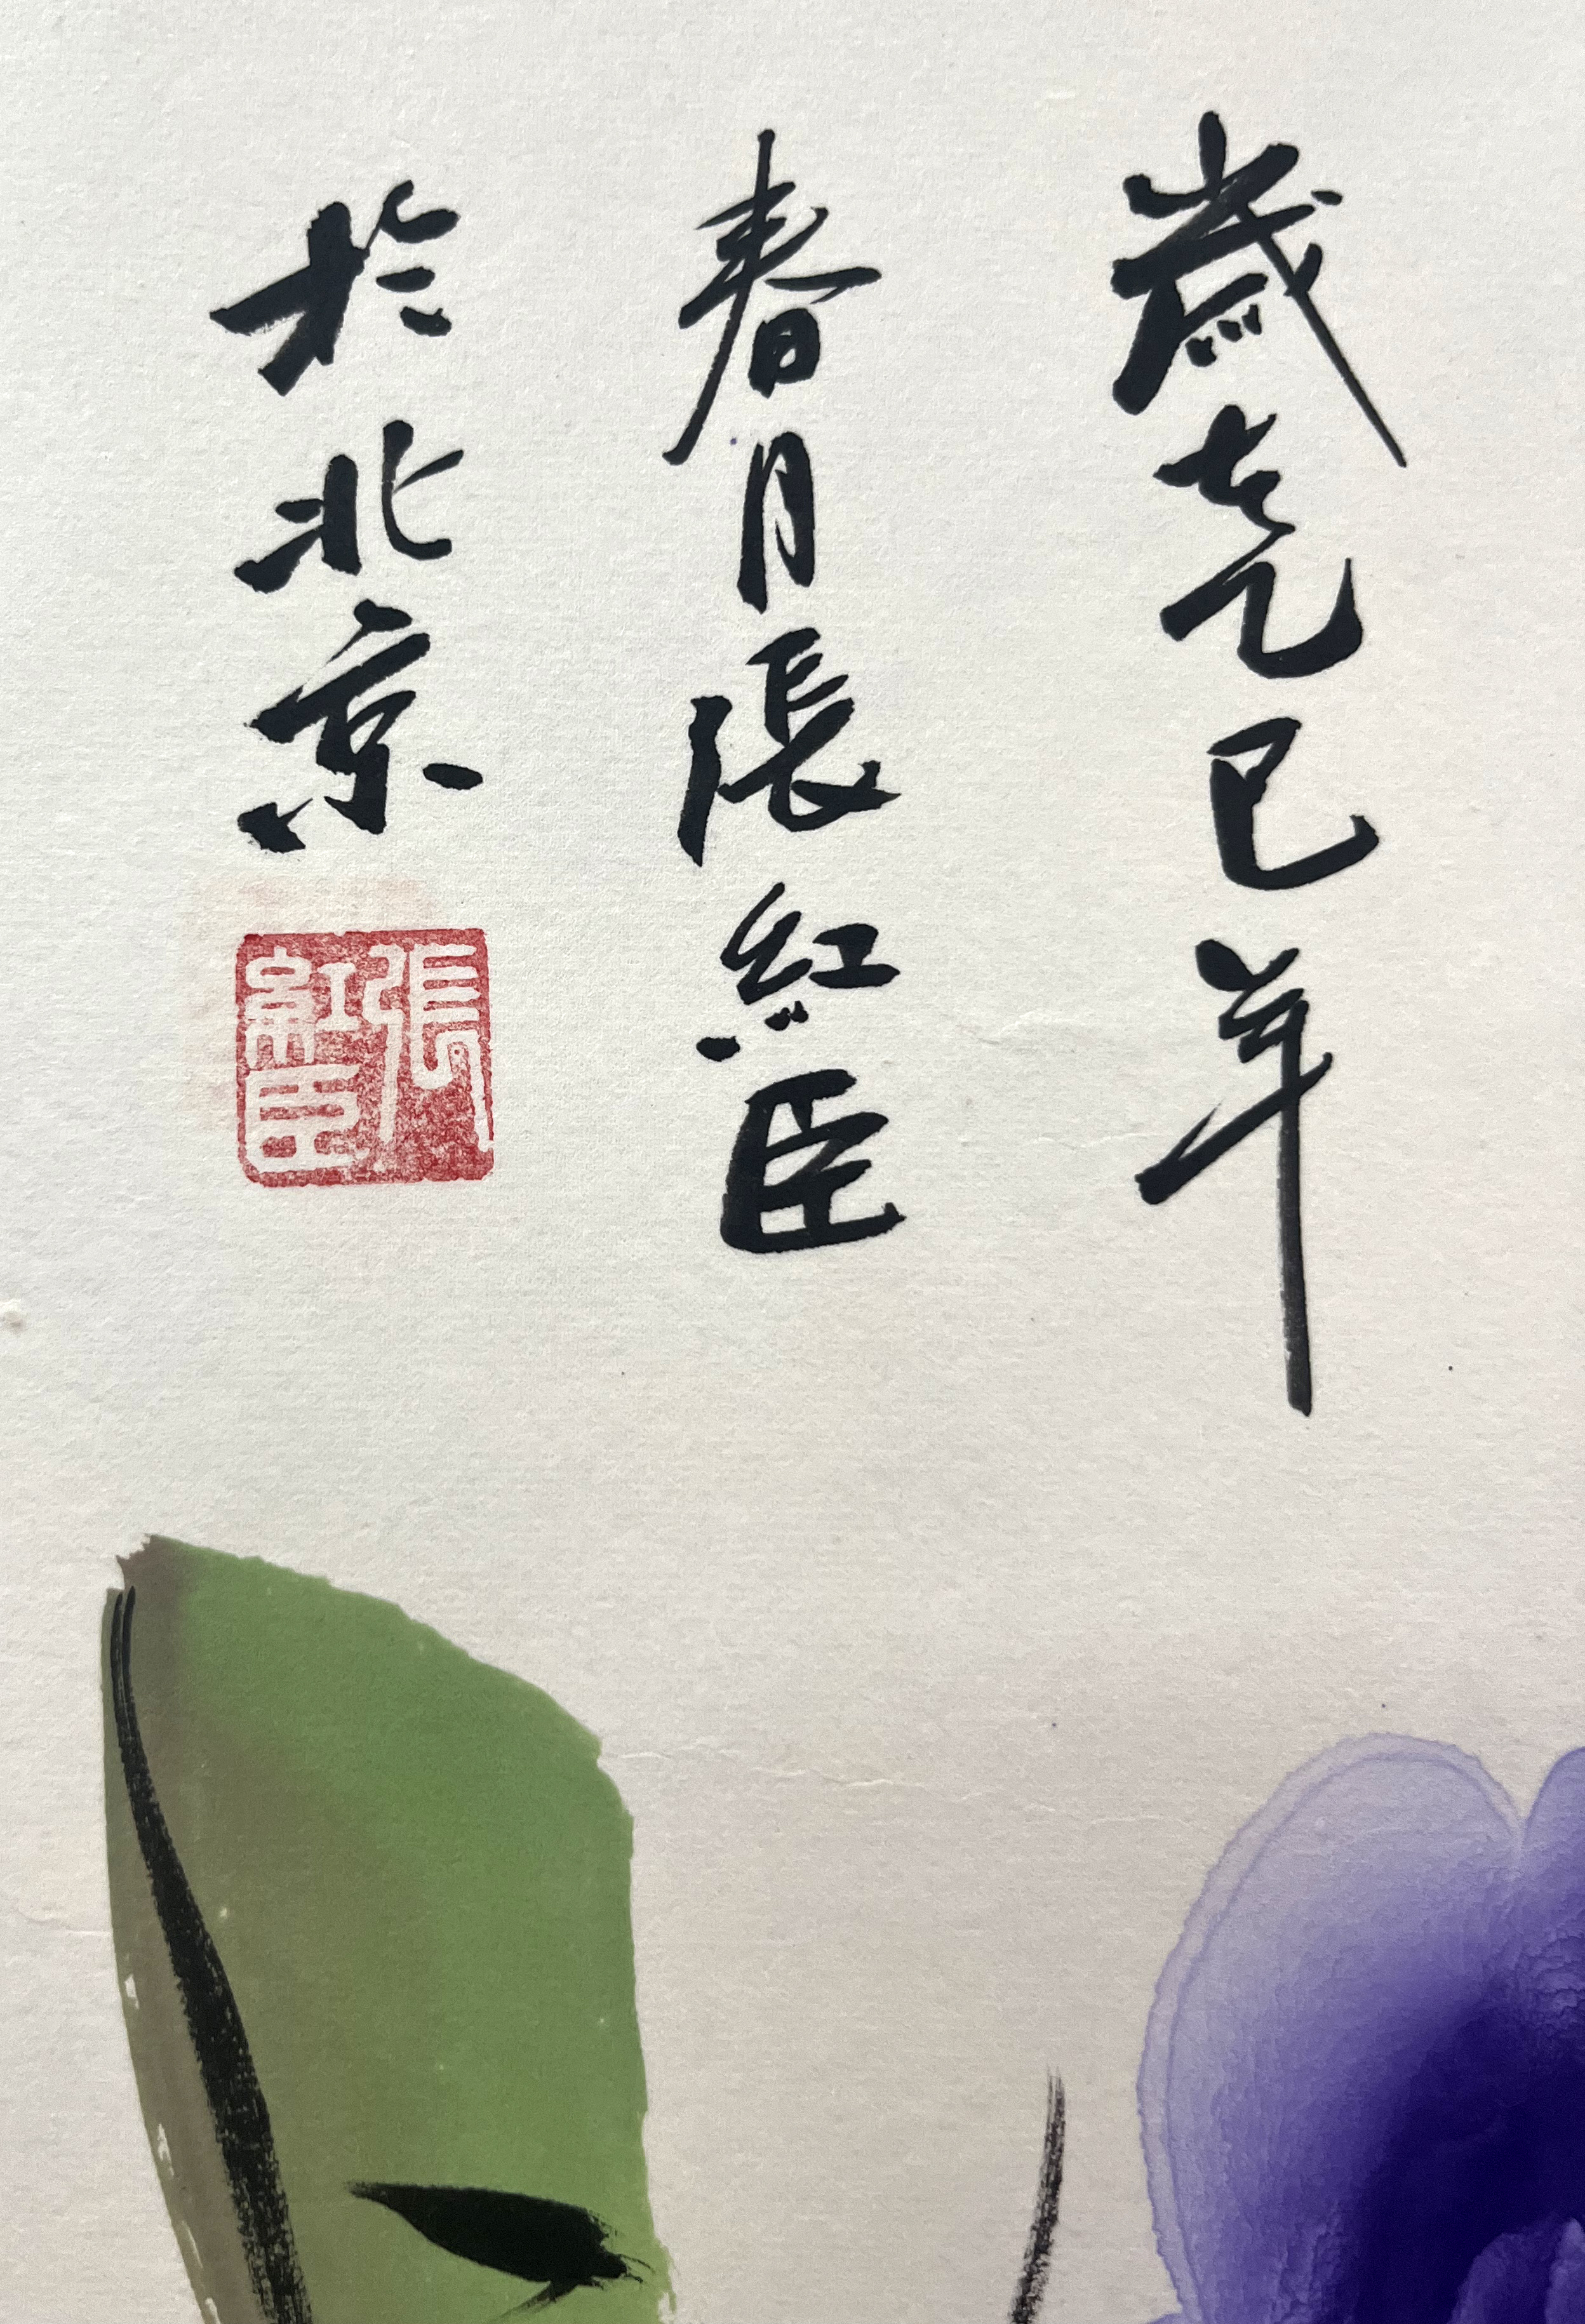 歲在乙巳年
春月張紅臣
於北京
張紅臣